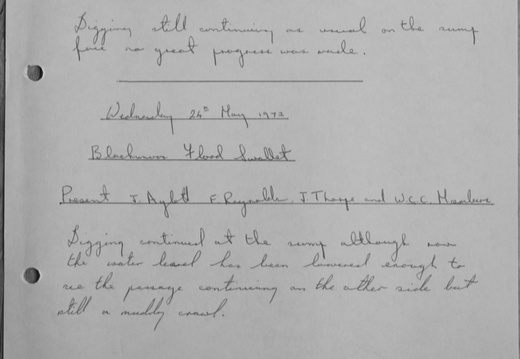 Digging still continuing as usual on the sump
face no great progress was made.
Wednesday 24th May 1972
Blackmoor Flood Swallet
Present J. Aylett F. Reynolds. J Thorpe and W.G.C.
Digging continued at the sump although now
the water level has been lowered enough to
see the passage continuing on the other side but
still a muddy crawl.